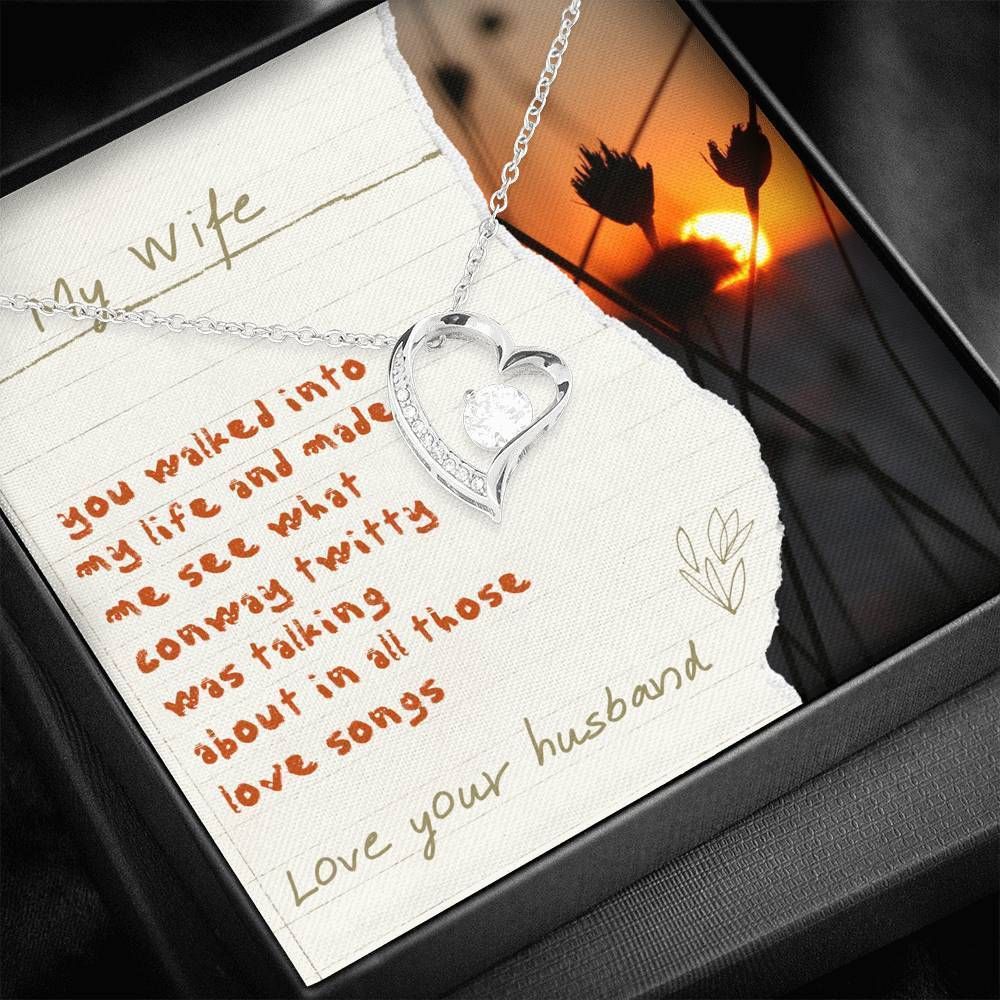 My Wife
you walked into
my life and made
me see what
conway twitty
was talking
about in all those
love songs
Love your husband